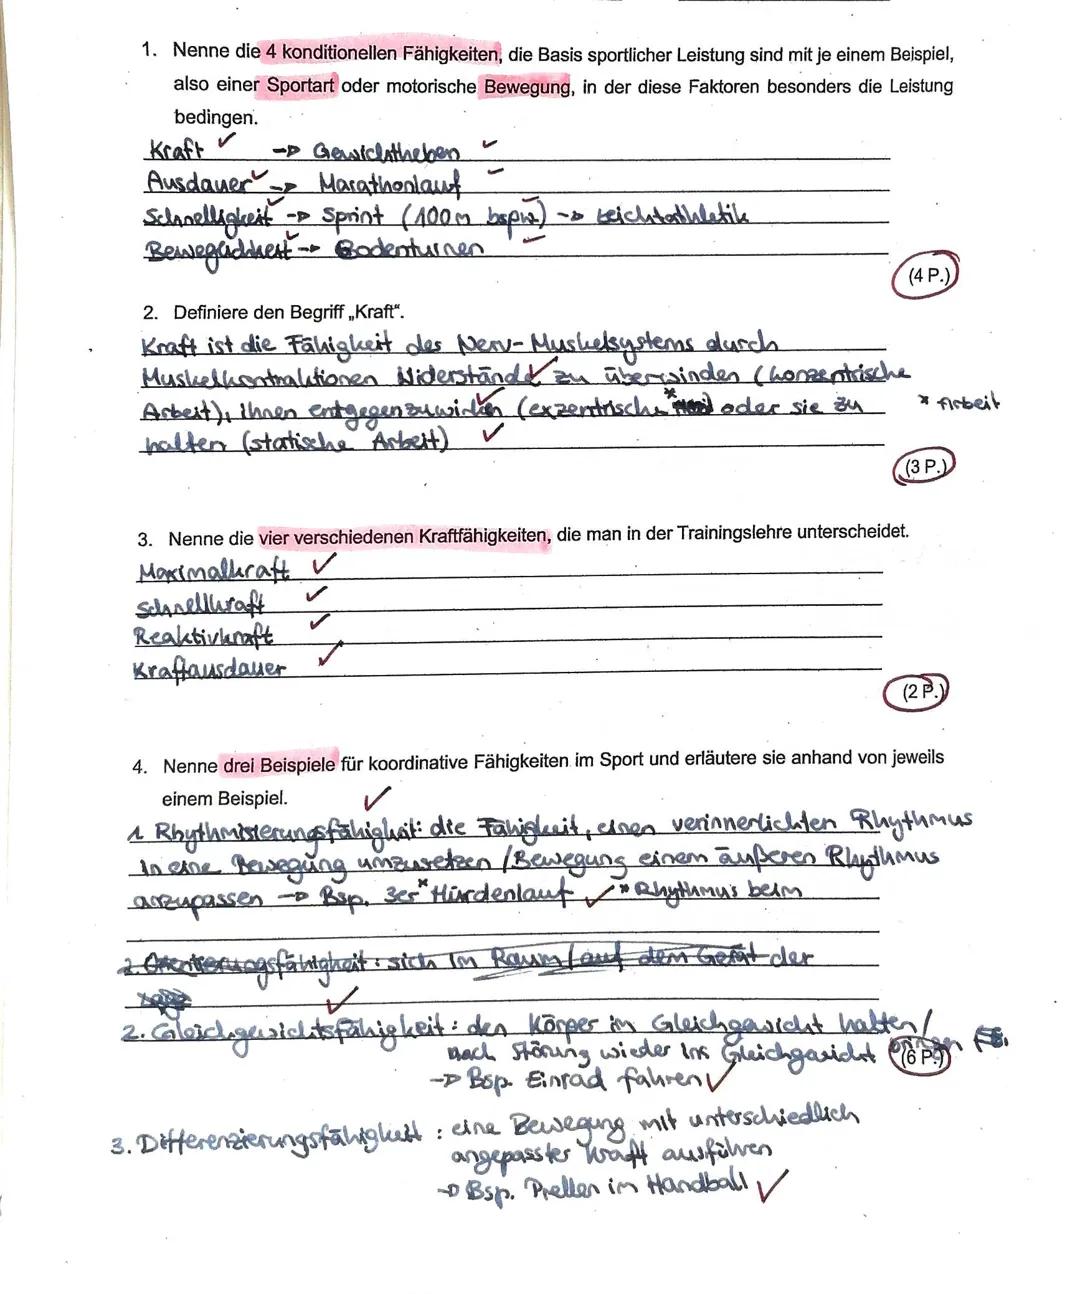 1. Nenne die 4 konditionellen Fähigkeiten, die Basis sportlicher Leistung sind mit je einem Beispiel,
also einer Sportart oder motorische Bewegung, in der diese Faktoren besonders die Leistung
bedingen.
Kraft ✓ → Gewichtheben ✓
Ausdauer ✓ → Marathonlauf ✓
Schnelligkeit ✓ → Sprint (100m bspw.) → Leichtathletik
Beweglichkeit ✓ → Bodenturnen ✓
(4 P.)
2. Definiere den Begriff „Kraft“.
Kraft ist die Fähigkeit des Nerv-Muskelsystems durch
Muskelkontraktionen Widerstände ✓ zu überwinden (konzentrische
Arbeit), ihnen entgegenzuwirken ✓ (exzentrische * oder sie zu * Arbeit
halten (statische Arbeit) ✓
(3 P.)
3. Nenne die vier verschiedenen Kraftfähigkeiten, die man in der Trainingslehre unterscheidet.
Maximalkraft ✓
Schnellkraft ✓
Reaktivkraft ✓
Kraftausdauer ✓
(2 P.)
4. Nenne drei Beispiele für koordinative Fähigkeiten im Sport und erläutere sie anhand von jeweils
einem Beispiel. ✓
1 Rhythmisierungsfähigkeit: die Fähigkeit, einen verinnerlichten Rhythmus
in eine Bewegung umzusetzen / Bewegung einem äußeren Rhythmus
anzupassen → Bsp. 3er * Hürdenlauf ✓ * Rhythmus beim
2. Orientierungsfähigkeit: sich im Raum / auf dem Gerät der
2. Gleichgewichtsfähigkeit: den Körper im Gleichgewicht halten /
nach Störung wieder ins Gleichgewicht bringen (6 P.)
→ Bsp. Einrad fahren ✓
3. Differenzierungsfähigkeit: eine Bewegung mit unterschiedlich
angepasster Kraft ausführen
→ Bsp. Prellen im Handball ✓